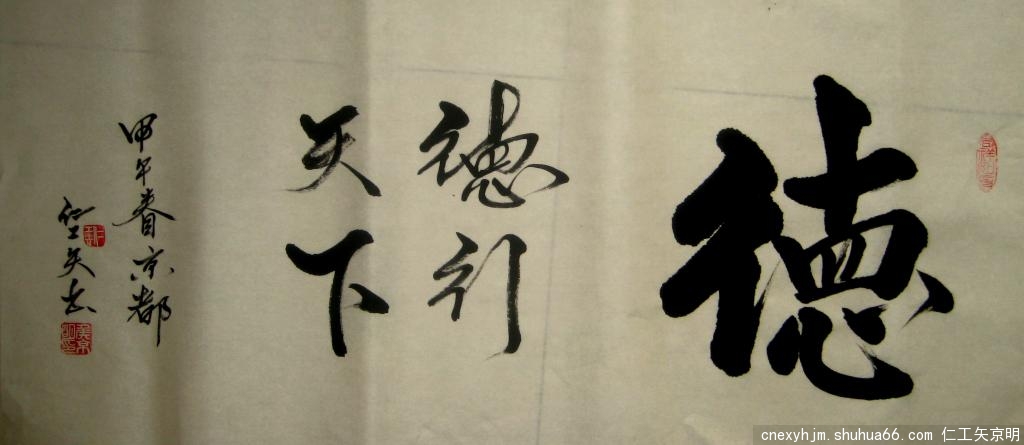 德
德行
天下
甲午春京都
仁工矢书
cnexyhjm.shuhua66.com 仁工矢京明